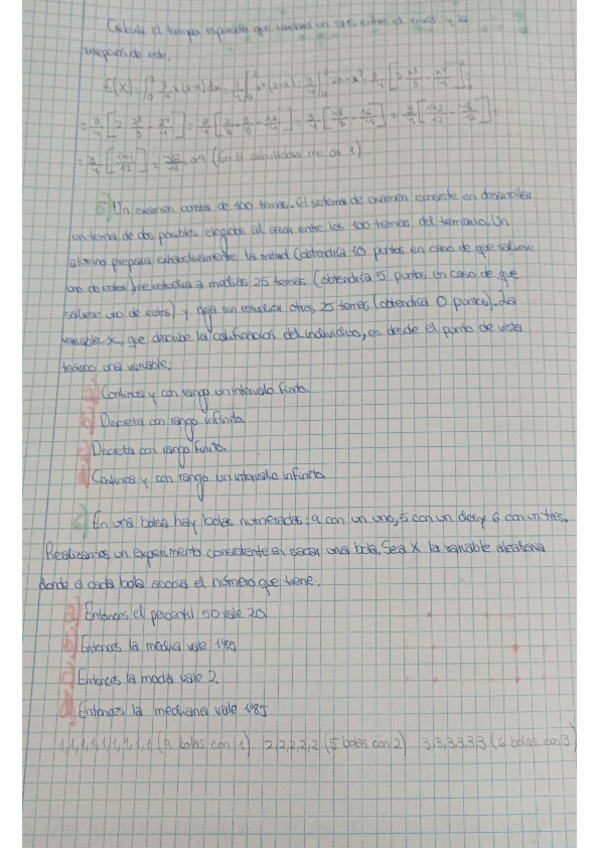 Calcula el tiempo esperado que tendrá un entre el envío y la
recepción de este.
E(X)=∫₀² 3/4 x·x(2-x) dx = 3/4 ∫₀² x²(2-x) = 3/4 ∫₀² 2x²-x³ = 3/4 [2 x³/3 - x⁴/4]₀²
= 3/4 [2 2³/3 - 2⁴/4] =
(En la calculadora me da 1)
5) Un examen consta de 100 temas. El sistema de examen consiste en desarrollar
un tema de dos posibles elegidos al azar entre los 100 temas del temario. Un
alumno prepara exhaustivamente la mitad (obtendría 10 puntos en caso de que saliese
uno de estos), estudia a medias 25 temas (obtendría 5 puntos en caso de que
saliese uno de estos) y deja sin estudiar otros 25 temas (obtendría 0 puntos). La
variable X, que describe la calificación del individuo, es desde el punto de vista
teórico una variable:
a) Continua y con rango un intervalo finito.
b) Discreta con rango infinito.
c) Discreta con rango finito.
d) Continua y con rango un intervalo infinito.
6) En una bolsa hay bolas numeradas: 9 con un uno, 5 con un dos y 6 con un tres.
Realizamos un experimento consistente en sacar una bola. Sea X la variable aleatoria
donde a cada bola asocia el número que tiene:
a) Entonces el percentil 50 vale 20
b) Entonces la media vale 1'85
c) Entonces la moda vale 2.
d) Entonces la mediana vale 1'85
1,1,1,1,1,1,1,1,1 (9 bolas con 1) 2,2,2,2,2 (5 bolas con 2) 3,3,3,3,3,3 (6 bolas con 3)